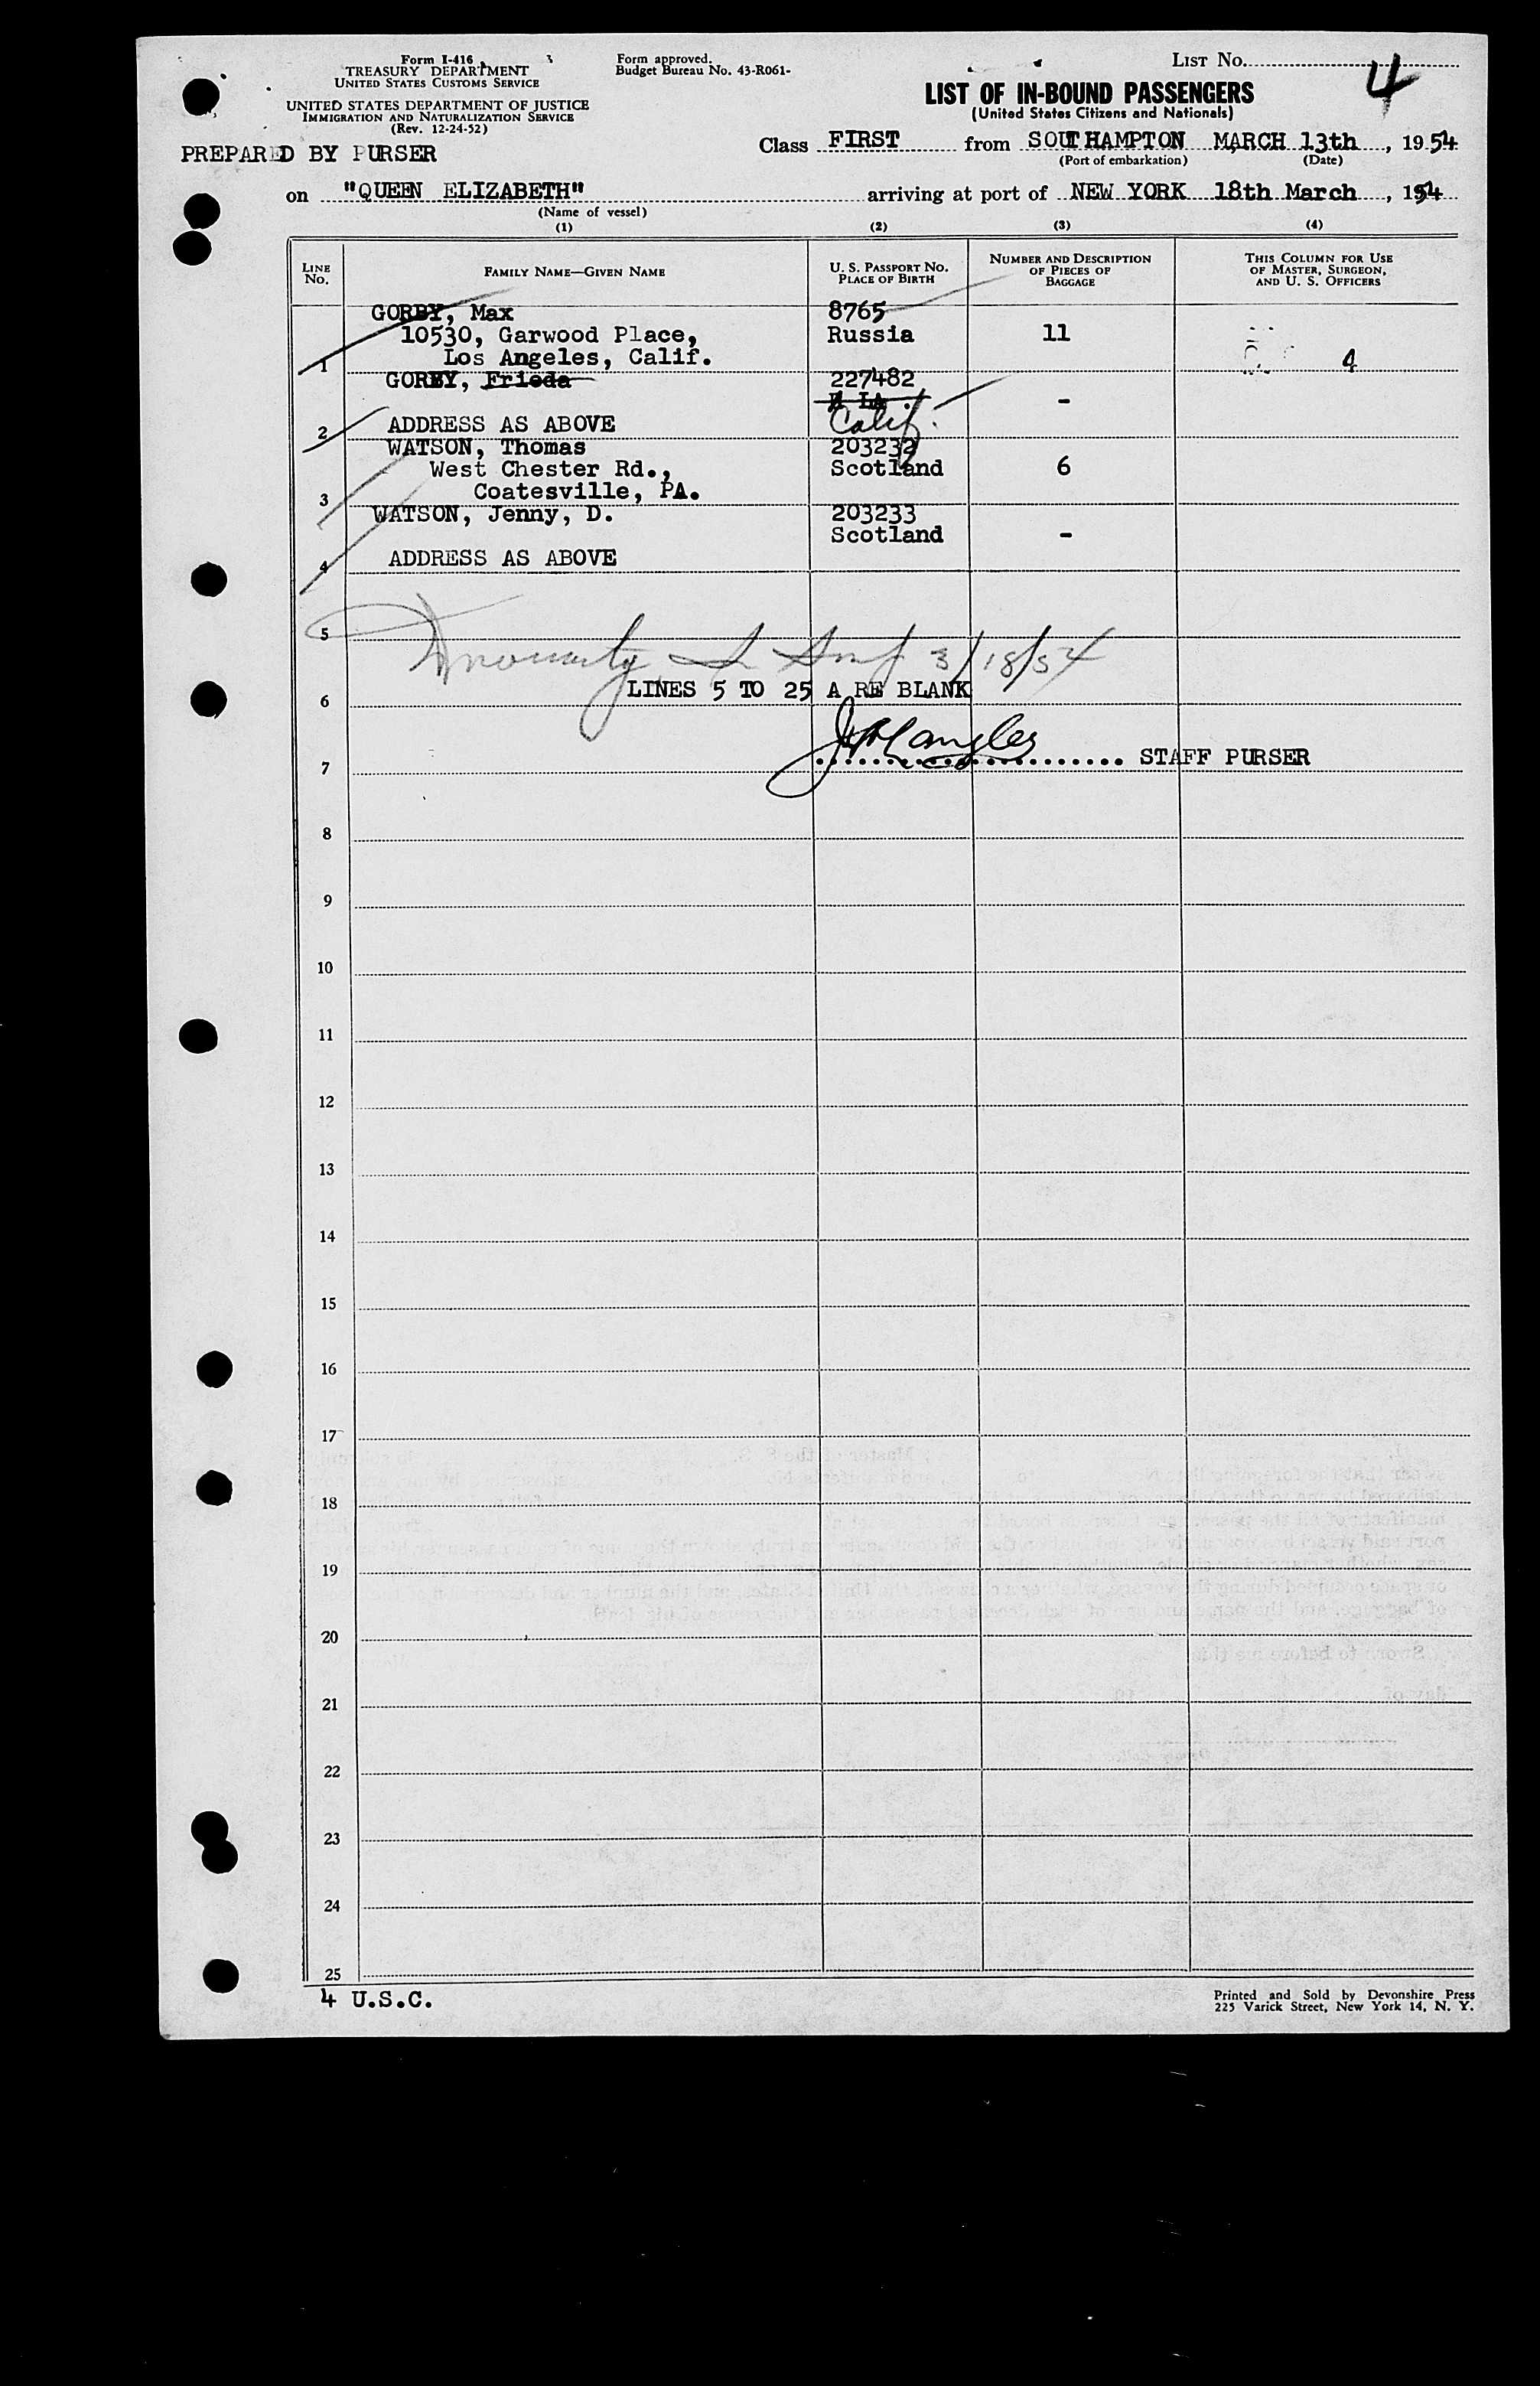 Form I-416
TREASURY DEPARTMENT
UNITED STATES CUSTOMS SERVICE
UNITED STATES DEPARTMENT OF JUSTICE
IMMIGRATION AND NATURALIZATION SERVICE
(Rev. 12-24-52)
Form approved.
Budget Bureau No. 43-R061-
LIST NO. 4
LIST OF IN-BOUND PASSENGERS
(United States Citizens and Nationals)
PREPARED BY PURSER
Class FIRST from SOUTHAMPTON MARCH 13th, 1954
(Port of embarkation) (Date)
on "QUEEN ELIZABETH" arriving at port of NEW YORK 18th March, 1954
(Name of vessel)
(1) (2) (3) (4)
LINE NO. FAMILY NAME—GIVEN NAME U. S. PASSPORT NO. PLACE OF BIRTH NUMBER AND DESCRIPTION OF PIECES OF BAGGAGE THIS COLUMN FOR USE OF MASTER, SURGEON, AND U. S. OFFICERS
GORBY, Max 8765
10530, Garwood Place, Russia 11
1 Los Angeles, Calif. 4
GORBY, Frieda 227482
-
2 ADDRESS AS ABOVE Calif.
WATSON, Thomas 203232
West Chester Rd., Scotland 6
3 Coatesville, PA.
WATSON, Jenny, D. 203233
Scotland -
4 ADDRESS AS ABOVE
5
3/18/54
6 LINES 5 TO 25 A RE BLANK
7 STAFF PURSER
8
9
10
11
12
13
14
15
16
17
18
19
20
21
22
23
24
25
4 U.S.C.
Printed and Sold by Devonshire Press
225 Varick Street, New York 14, N. Y.